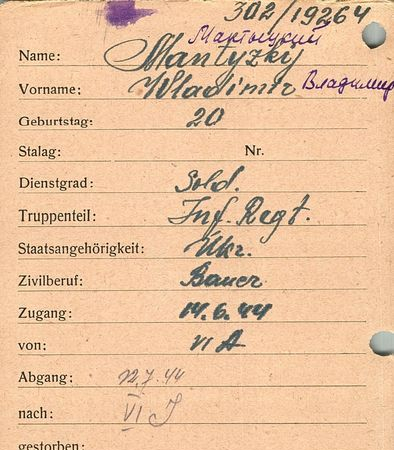 302/19264
Мартыцкий
Name: Mantyzky
Vorname: Wladimir Владимир
Geburtstag: 20
Stalag: Nr.
Dienstgrad: Sold.
Truppenteil: Inf. Regt.
Staatsangehörigkeit: Ukr.
Zivilberuf: Bauer
Zugang: 14.6.44
von: VI A
Abgang: 12.7.44
nach: VI J
gestorben: